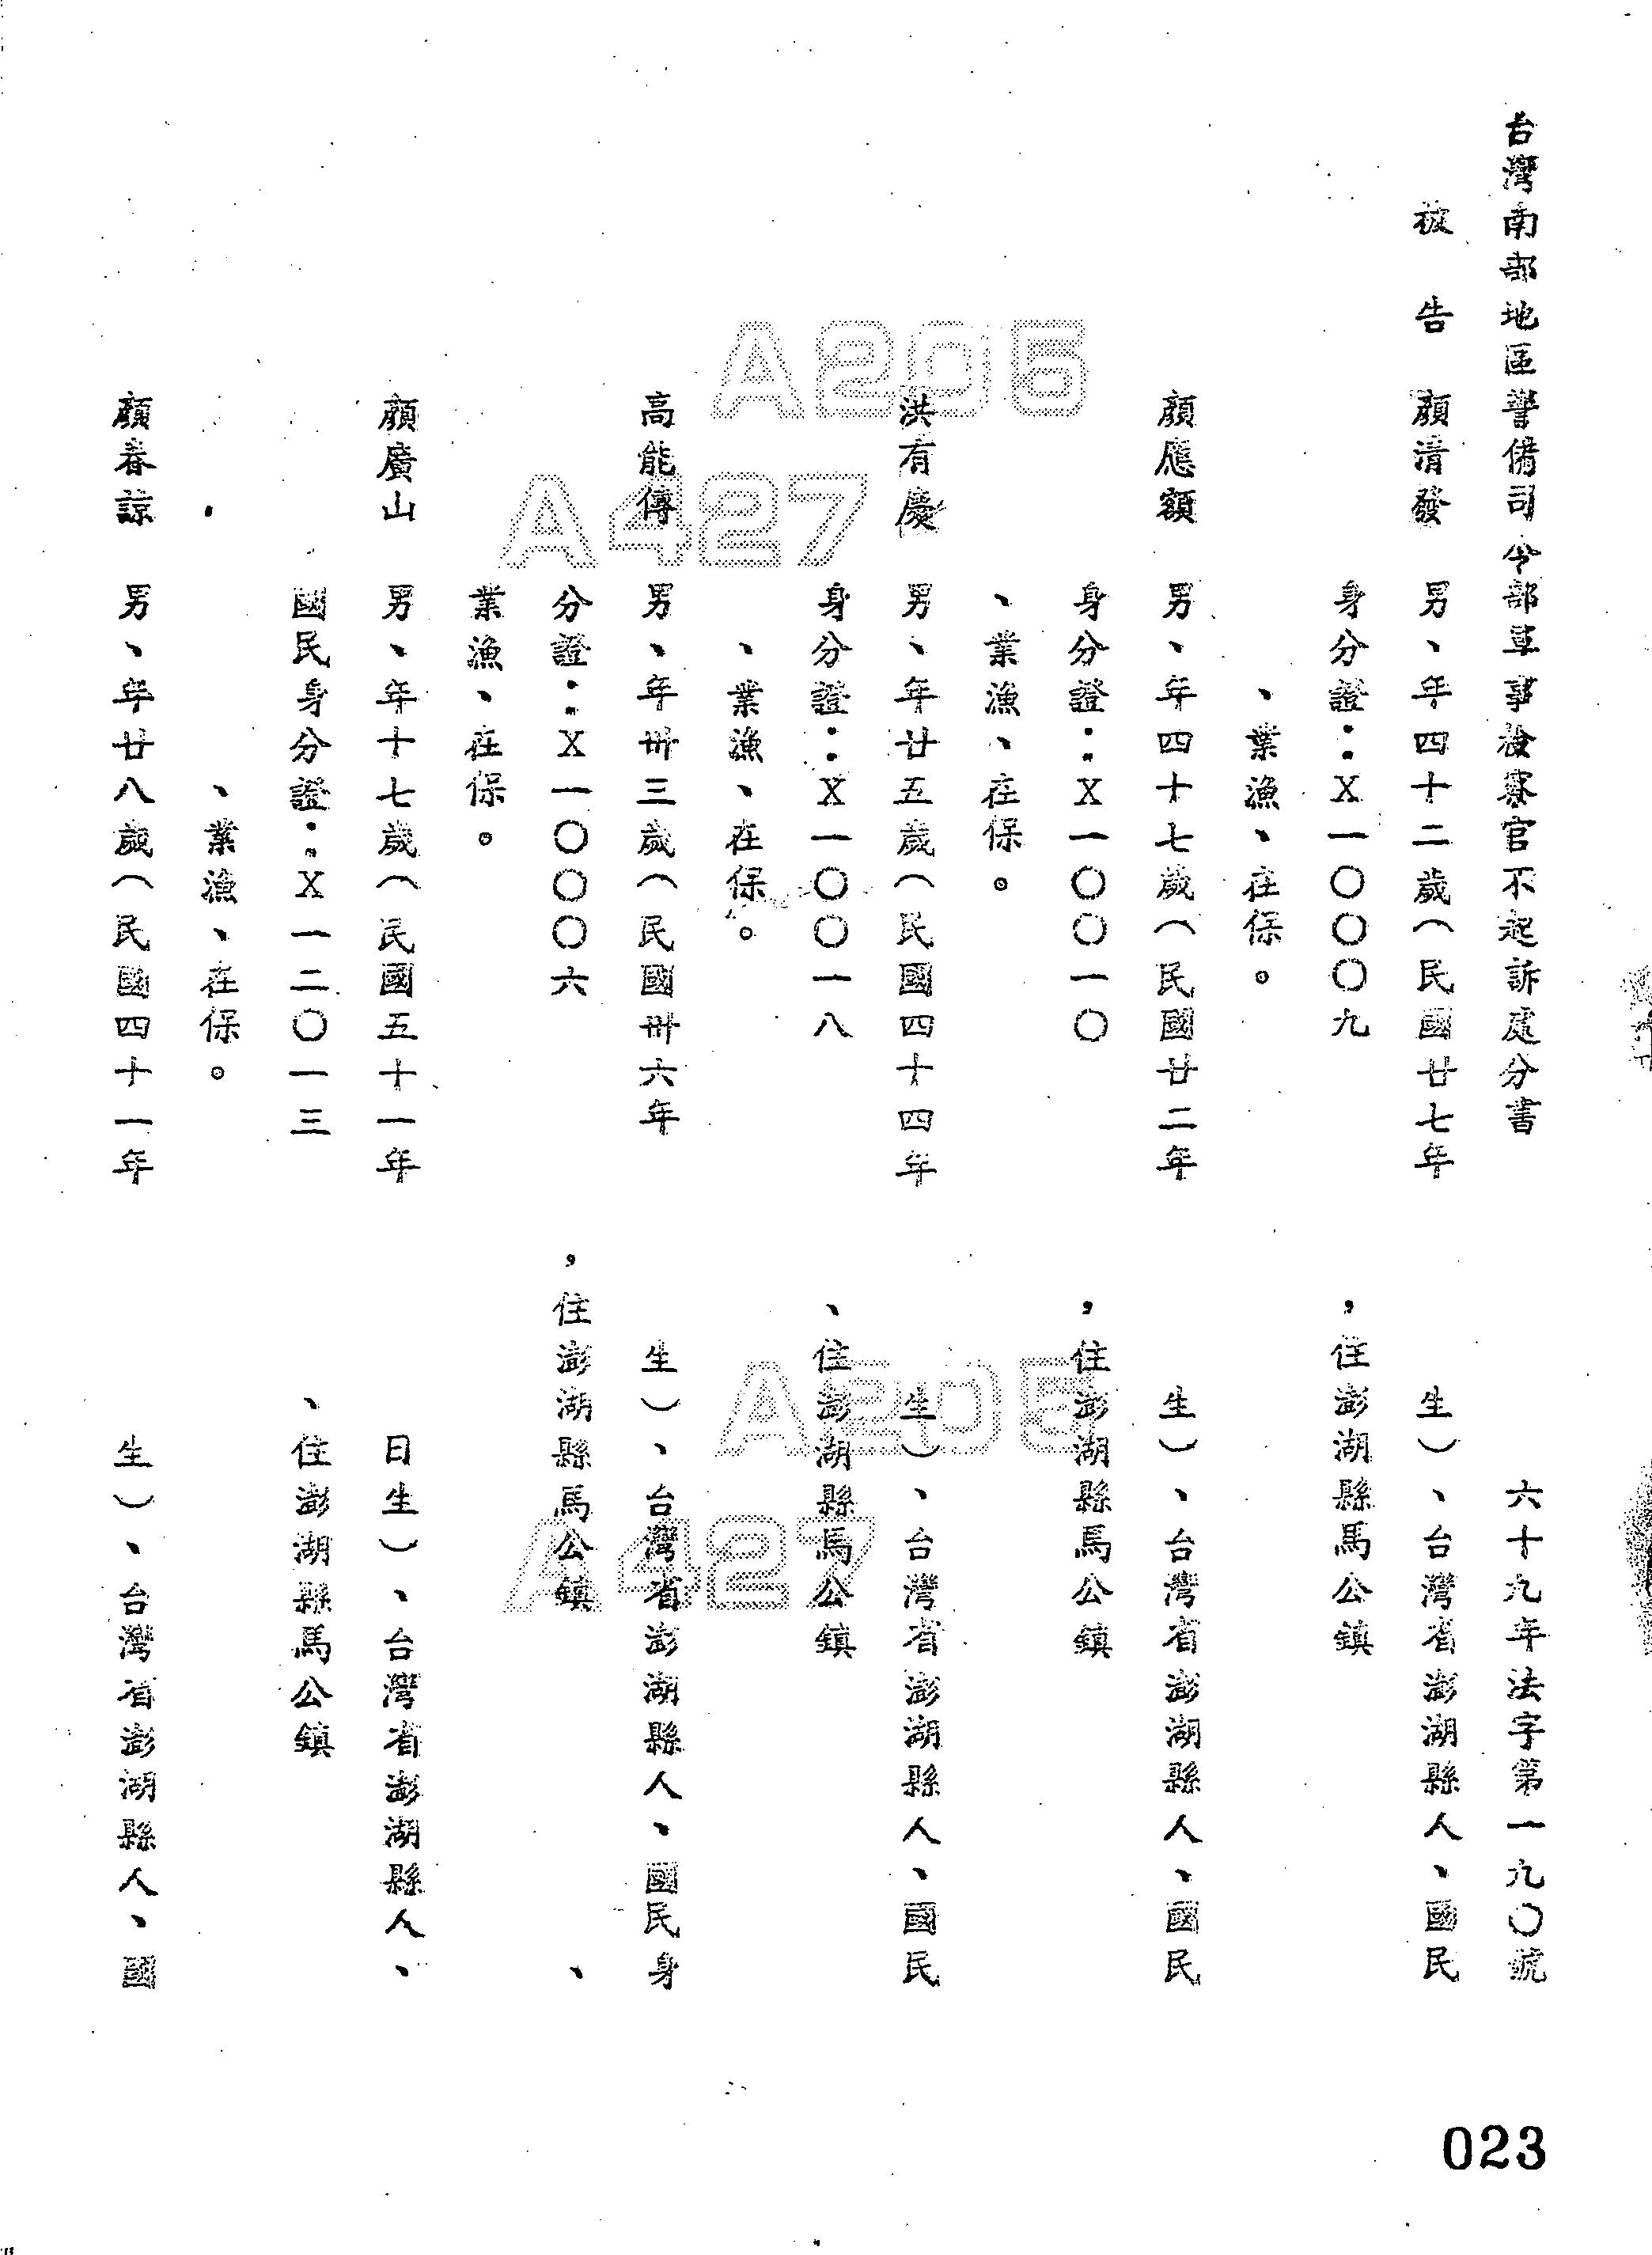 台灣南部地區警備司令部軍事檢察官不起訴處分書 六十九年法字第一九〇號
被告 顏清發 男、年四十二歲（民國廿七年 生）、台灣省澎湖縣人、國民
身分證：X一〇〇〇九 ，住澎湖縣馬公鎮
、業漁、在保。
顏應額 男、年四十七歲（民國廿二年 生）、台灣省澎湖縣人、國民
身分證：X一〇〇一〇 ，住澎湖縣馬公鎮
、業漁、在保。
洪有慶 男、年廿五歲（民國四十四年 生）、台灣省澎湖縣人、國民
身分證：X一〇〇一八 、住澎湖縣馬公鎮
、業漁、在保。
高能傳 男、年卅三歲（民國卅六年 生）、台灣省澎湖縣人、國民身
分證：X一〇〇〇六 ，住澎湖縣馬公鎮 、
業漁、在保。
顏廣山 男、年十七歲（民國五十一年 日生）、台灣省澎湖縣人、
國民身分證：X一二〇一三 、住澎湖縣馬公鎮
、業漁、在保。
顏春諒 男、年廿八歲（民國四十一年 生）、台灣省澎湖縣人、國
A205
A427
A205
A427
023